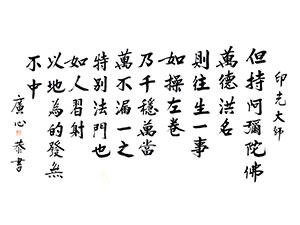 印光大師
但持阿彌陀佛
萬德洪名
則往生一事
如操左卷
乃千穩萬當
萬不漏一之
特別法門也
如人習射
以地為的發無
不中
廣心恭書